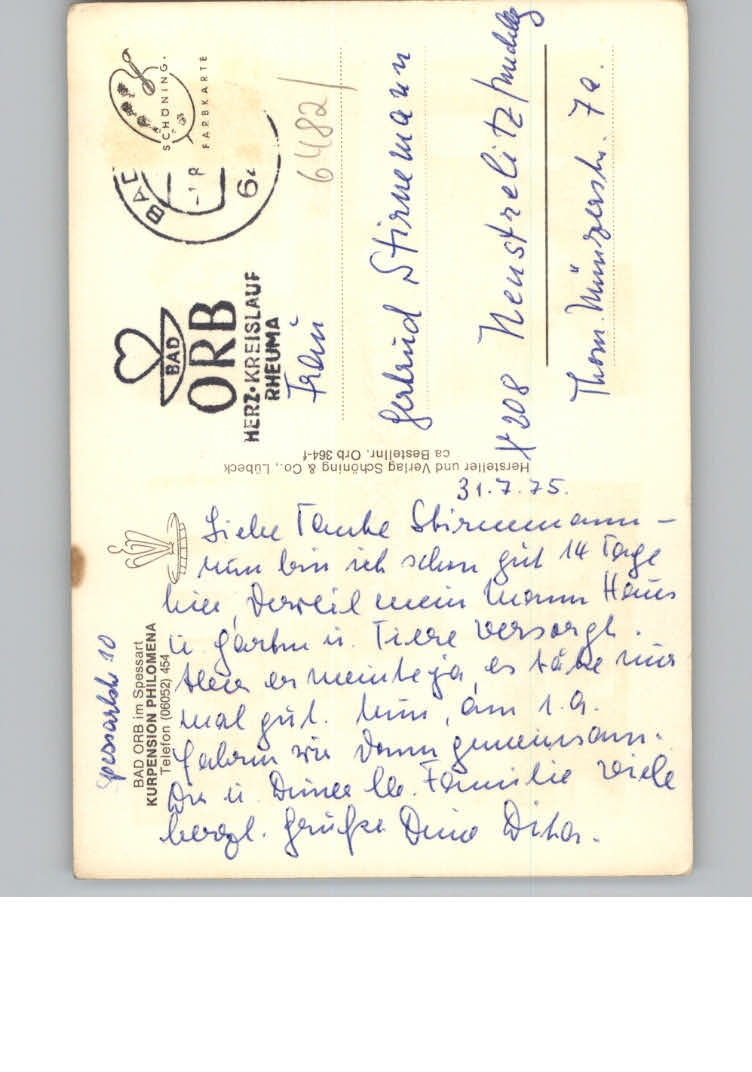 Spessartstr 10
BAD ORB im Spessart
KURPENSION PHILOMENA
Telefon (06052) 454
31.7.75.
Liebe Tante Stirnemann –
nun bin ich schon gut 14 Tage
hier, derweil mein Mann Haus
u. Garten u. Tiere versorgt.
Aber er meinte ja, es täte mir
mal gut. Nun, am 1.9.
fahren wir dann gemeinsam.
Dir u. Deiner lb. Familie viele
herzl. Grüße Deine
Hersteller und Verlag Schöning & Co., Lübeck
ca Bestellnr. Orb 364-f
SCHÖNING
FARBKARTE
BAD
6482/
BAD
ORB
HERZ·KREISLAUF
RHEUMA
Frau
Gertrud Stirnemann
X 208 Neustrelitz/
Thom. Münzerstr. 7a.